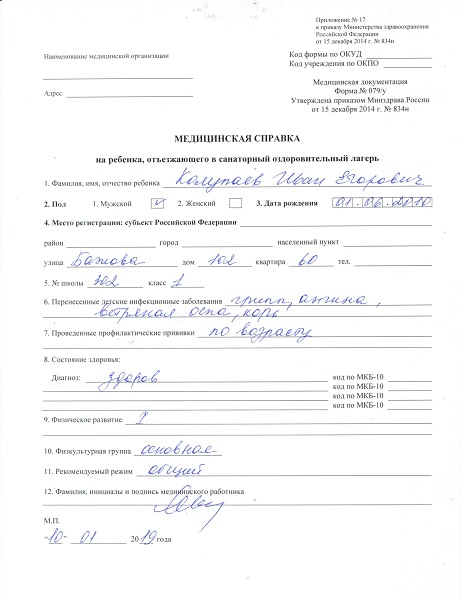 Приложение № 17
к приказу Министерства здравоохранения
Российской Федерации
от 15 декабря 2014 г. № 834н
Наименование медицинской организации
Код формы по ОКУД
Код учреждения по ОКПО
Адрес
Медицинская документация
Форма № 079/у
Утверждена приказом Минздрава России
от 15 декабря 2014 г. № 834н
МЕДИЦИНСКАЯ СПРАВКА
на ребенка, отъезжающего в санаторный оздоровительный лагерь
1. Фамилия, имя, отчество ребенка Колупаев Иван Егорович
2. Пол 1. Мужской ✓ 2. Женский 3. Дата рождения 01.06.2010
4. Место регистрации: субъект Российской Федерации
район город населенный пункт
улица Бажова дом 102 квартира 60 тел.
5. № школы 302 класс 1
6. Перенесенные детские инфекционные заболевания грипп, ангина,
ветряная оспа, корь
7. Проведенные профилактические прививки по возрасту
8. Состояние здоровья:
Диагноз: здоров код по МКБ-10
код по МКБ-10
код по МКБ-10
код по МКБ-10
9. Физическое развитие I
10. Физкультурная группа основная
11. Рекомендуемый режим общий
12. Фамилия, инициалы и подпись медицинского работника
М.П.
"10" 01 2019 года